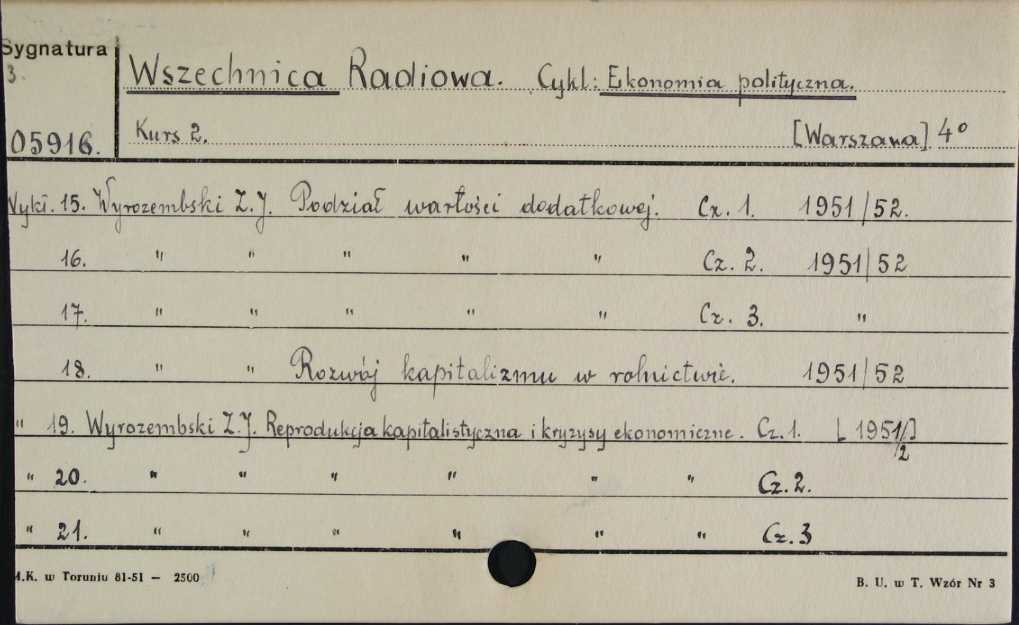 Sygnatura
3.
Wszechnica Radiowa. Cykl: Ekonomia polityczna.
05916. Kurs 2. [Warszawa] 4°
Wykł. 15. Wyrozembski Z.J. Podział wartości dodatkowej. Cz. 1. 1951/52.
16. " " " " " Cz. 2. 1951/52
17. " " " " " Cz. 3. "
18. " " Rozwój kapitalizmu w rolnictwie. 1951/52
" 19. Wyrozembski Z.J. Reprodukcja kapitalistyczna i kryzysy ekonomiczne. Cz. 1. [1951/2]
" 20. " " " " " " Cz. 2.
" 21. " " " " " " Cz. 3
M.K. w Toruniu 81-51 — 2500 B. U. w T. Wzór Nr 3